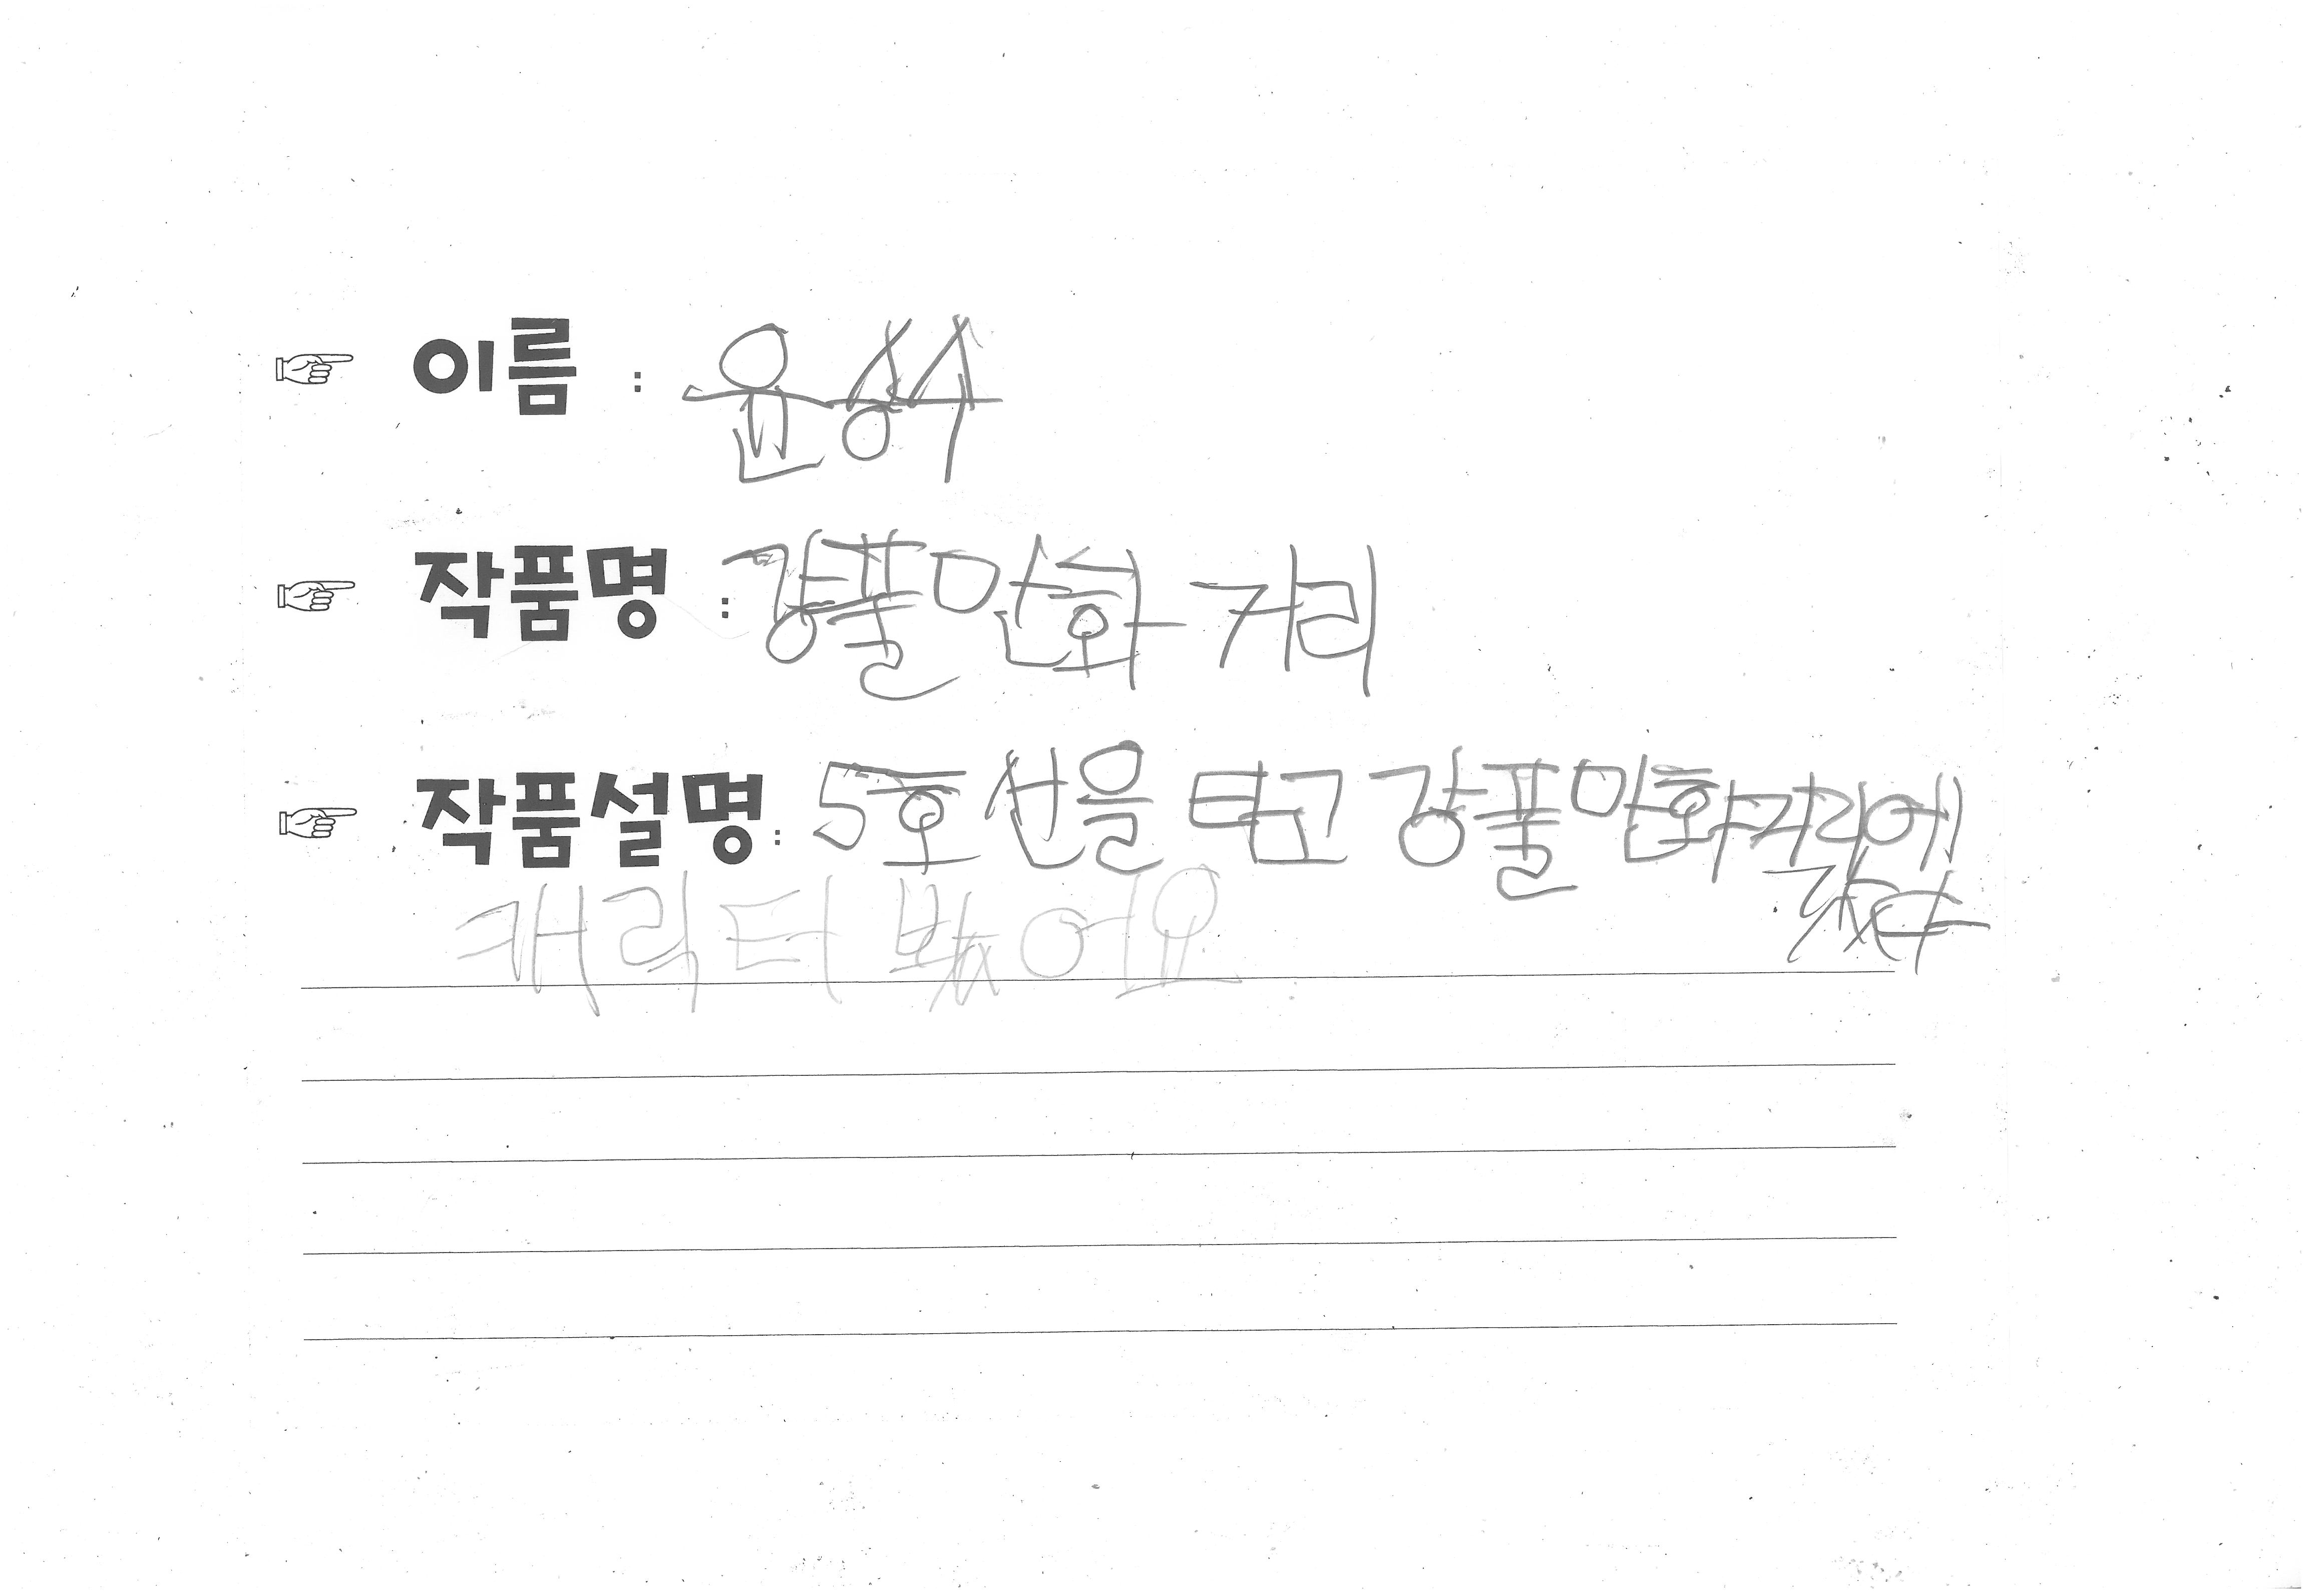 ☞ 이름 : 윤상수
☞ 작품명 : 강풀만화 거리
☞ 작품설명: 5호선을 타고 강풀만화거리에
갔다
캐릭터 봤어요